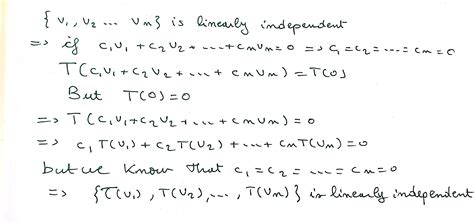 { v₁, v₂ ... vₙ} is linearly independent
=> if c₁v₁ + c₂v₂ + ... + cₙvₙ = 0 => c₁ = c₂ = ... = cₙ = 0
T(c₁v₁ + c₂v₂ + ... + cₙvₙ) = T(0)
But T(0) = 0
=> T(c₁v₁ + c₂v₂ + ... + cₙvₙ) = 0
=> c₁ T(v₁) + c₂ T(v₂) + ... + cₙ T(vₙ) = 0
but we know that c₁ = c₂ = ... = cₙ = 0
=> {T(v₁), T(v₂), ..., T(vₙ)} is linearly independent